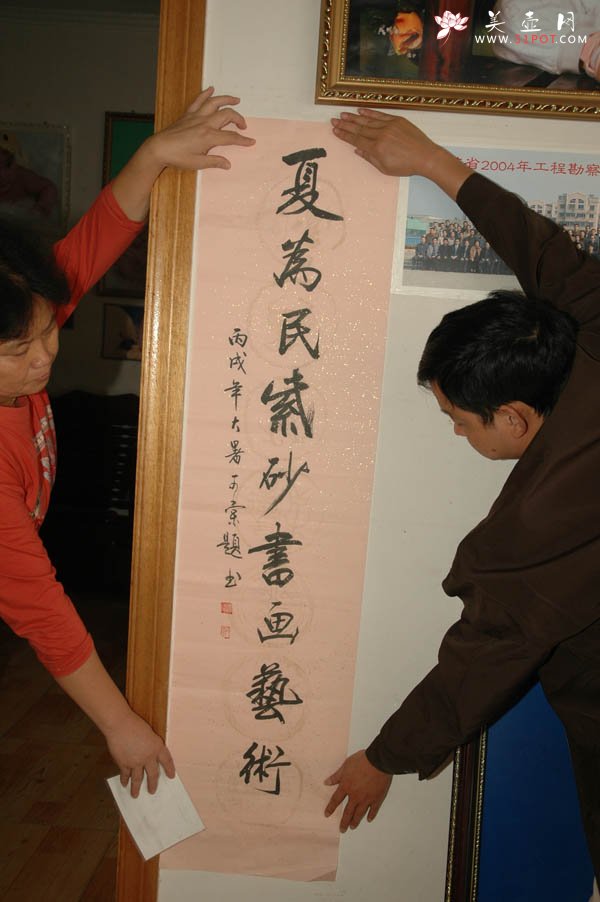 美壶网
WWW.51POT.COM
省2004年工程勘察
夏為民紫砂書画藝術
丙戌年大暑子棠題書